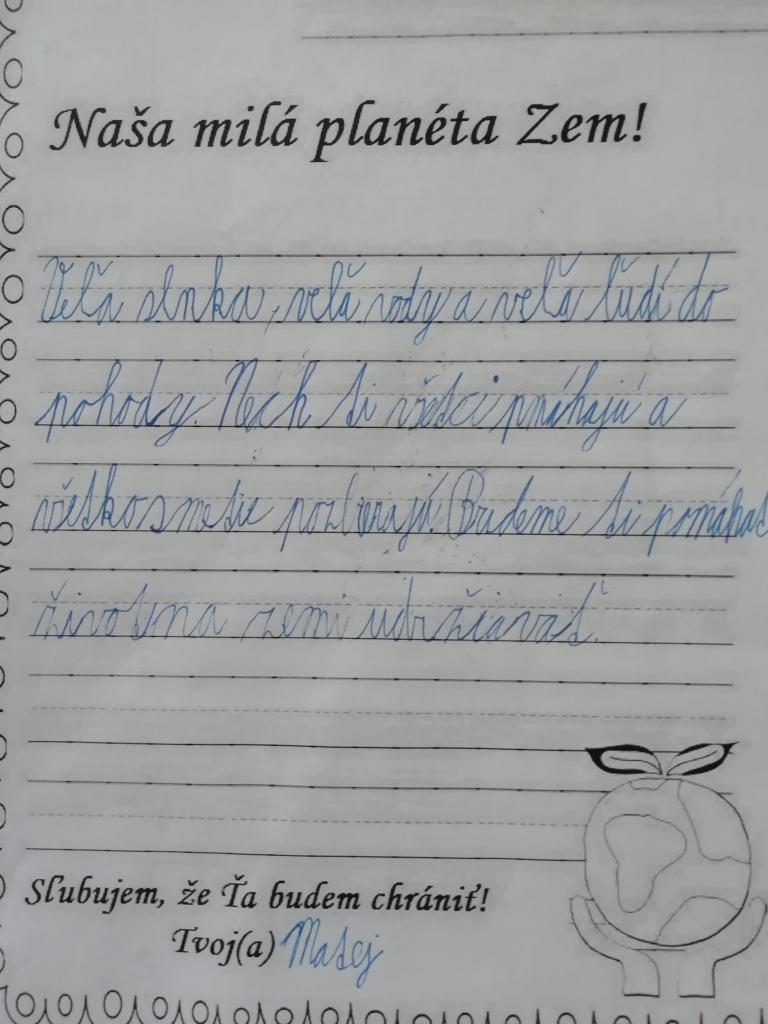 Naša milá planéta Zem!
Veľa slnka, veľa vody a veľa ľudí do
pohody. Nech si všetci pmáhajú a
všetko smetie pozberajú Budeme si pomáhať
život na zemi udržiavať.
Sľubujem, že Ťa budem chrániť!
Tvoj(a) Matej